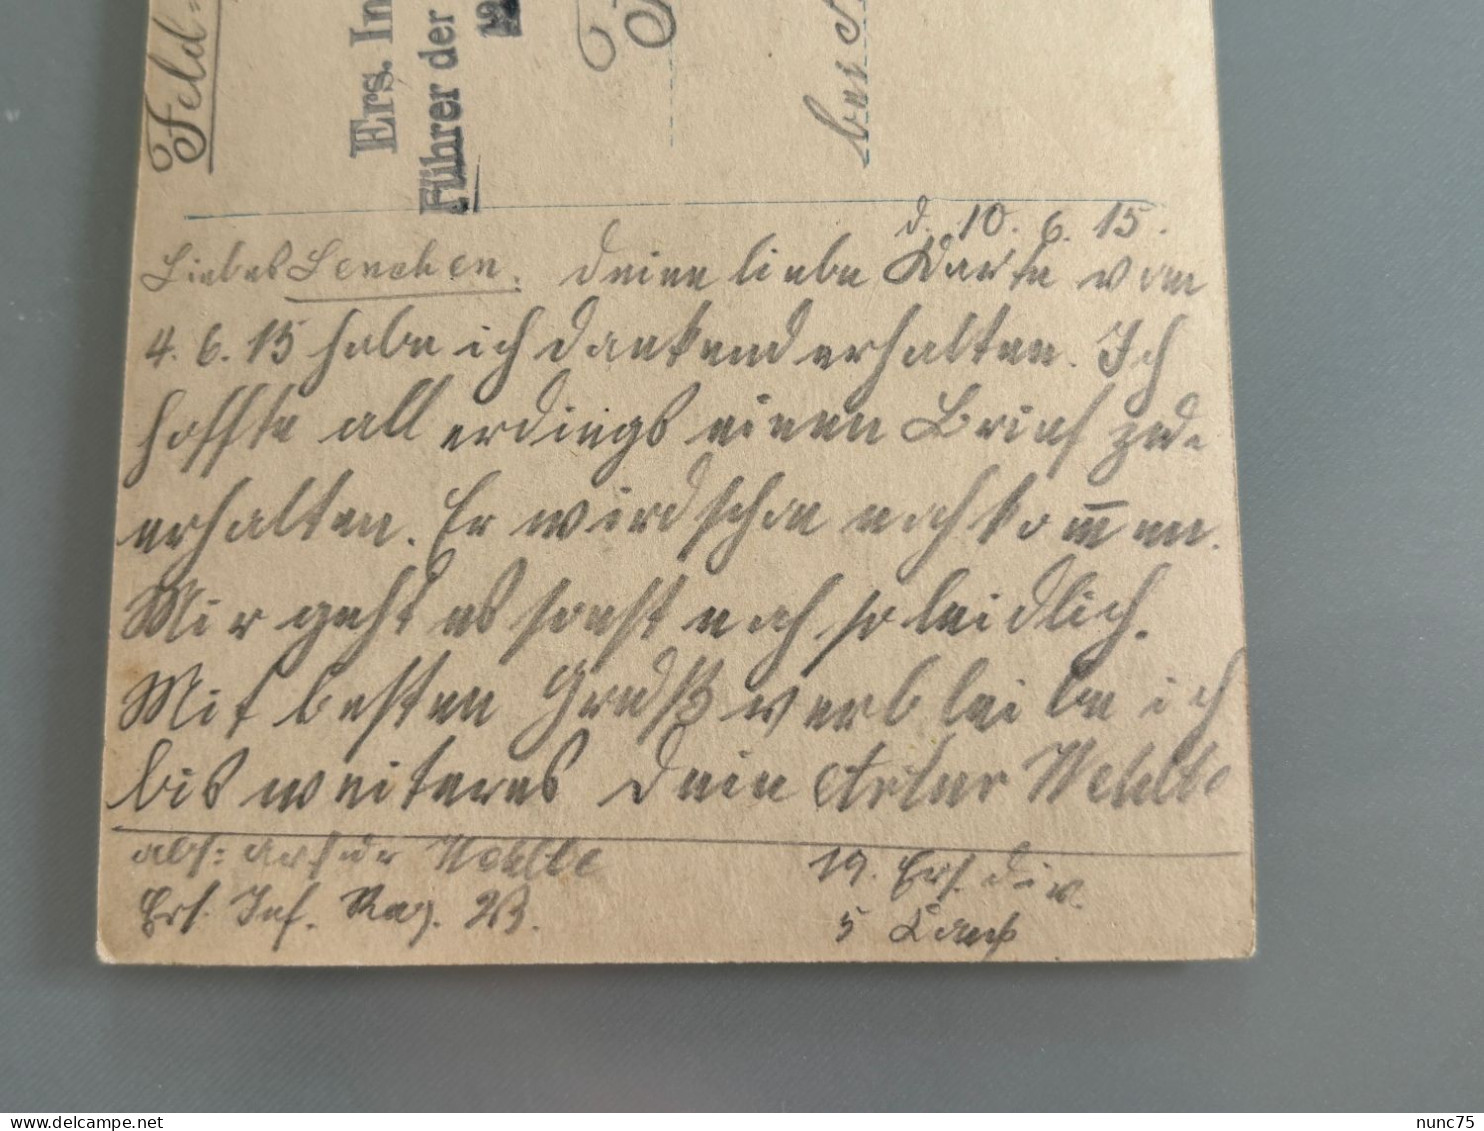 Feld-
Ers. In
Führer der
d. 10. 6. 15.
Liebes Lenchen. Deine liebe Karte vom
4. 6. 15 habe ich dankend erhalten. Ich
hoffte allerdings einen Brief zu
erhalten. Er wird schon noch kom̅en.
Mir geht es sonst noch so leidlich.
Mit besten Gruß verbleibe ich
bis weiteres Dein Artur
abs: Artur
Ers. Inf. Reg. 23.
19. Ers. Div.
5 Komp
nunc75